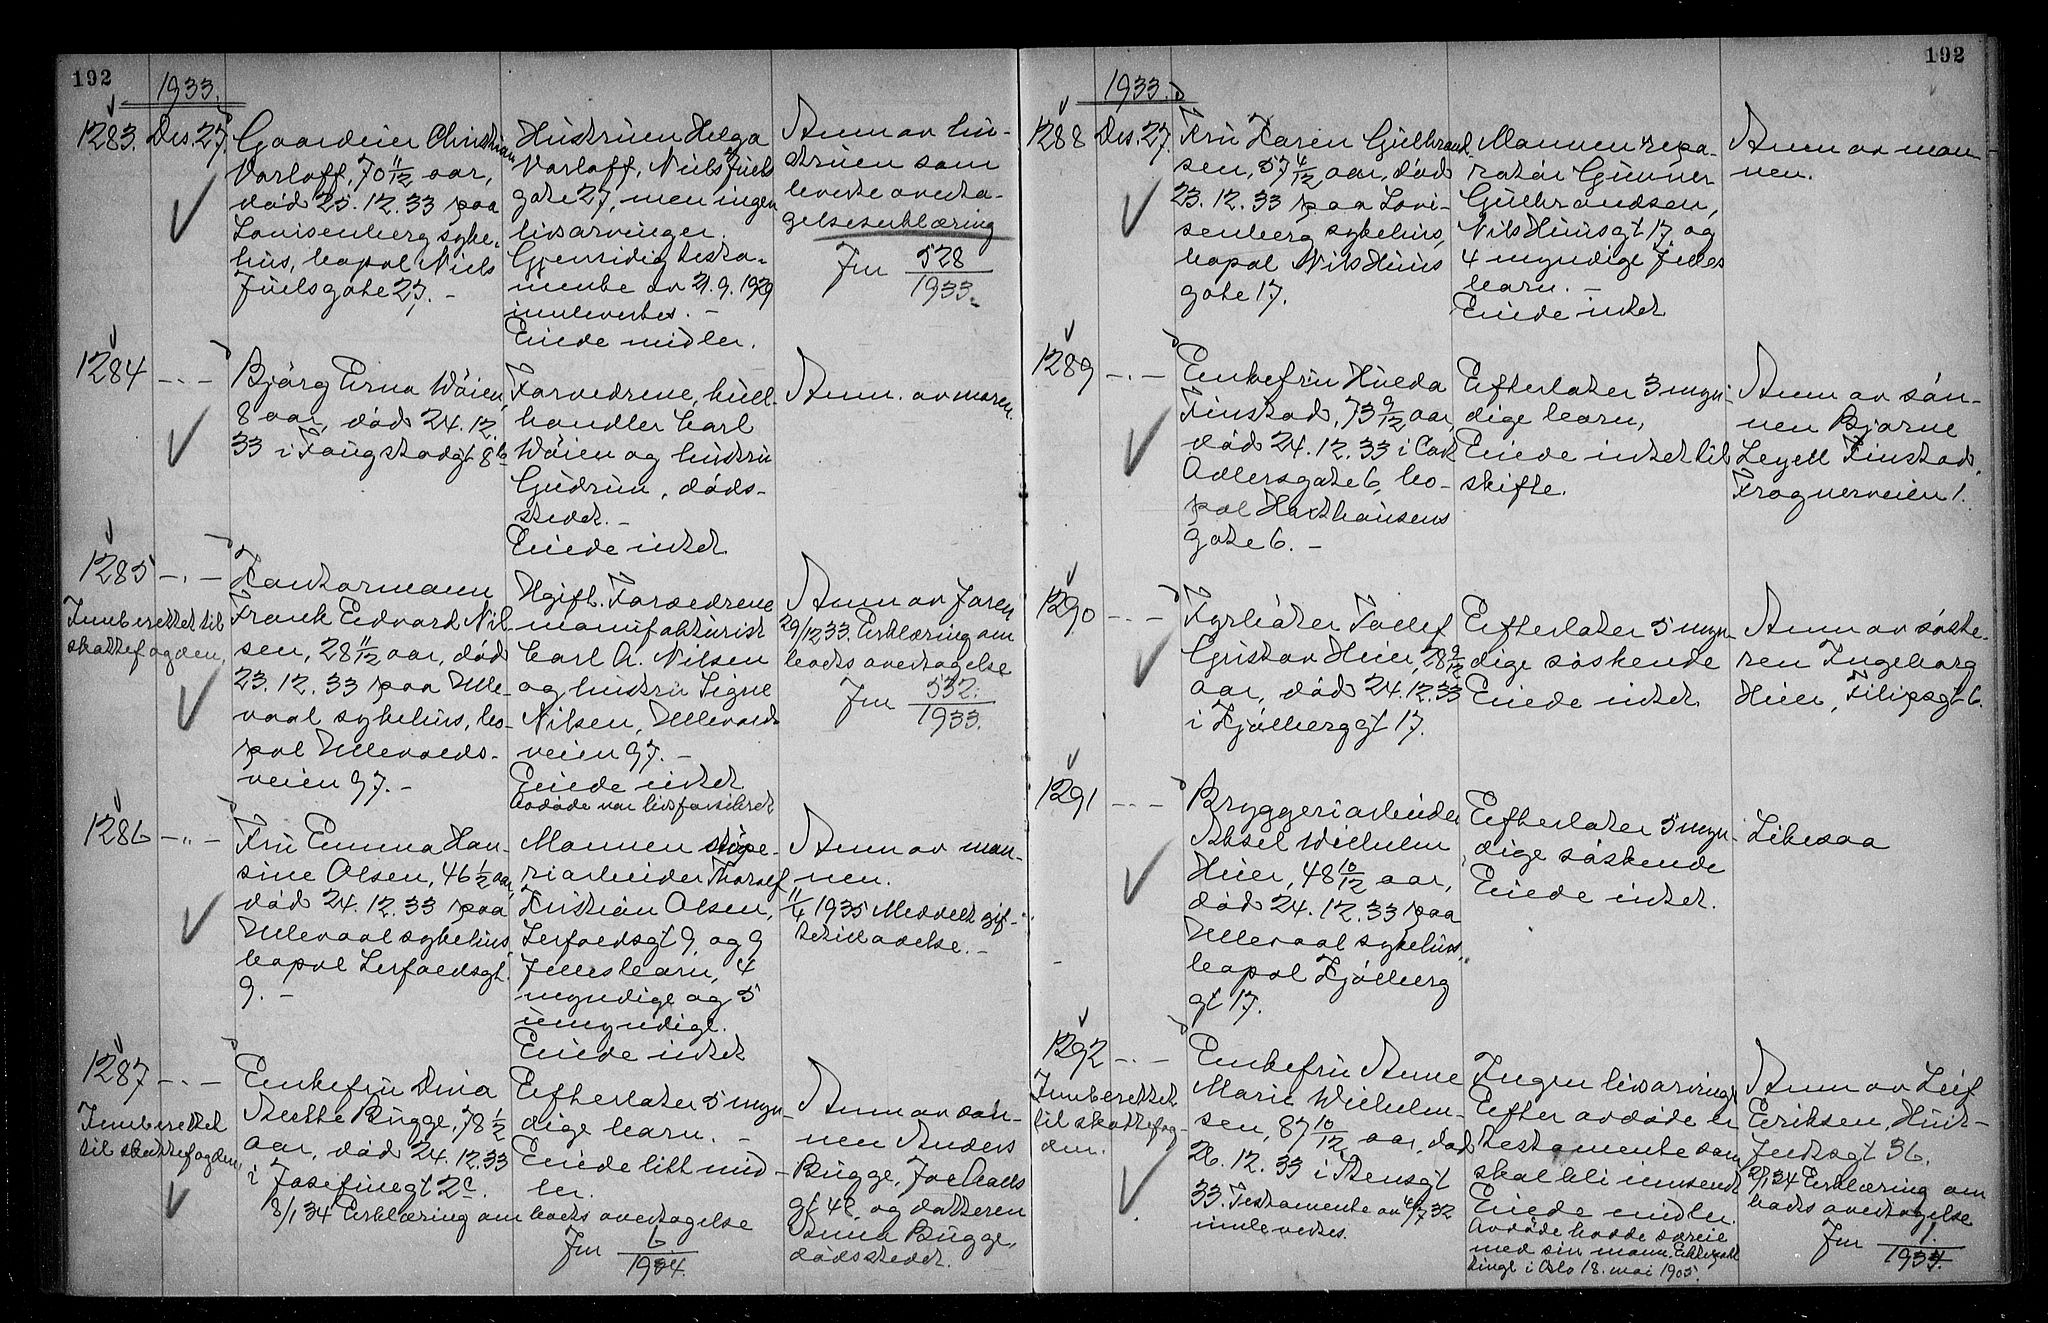 192
1933.
1283. Des. 27.
Gaardeier Christian
Vorloff, 70 11/12 aar,
død 25.12.33 paa
Lovisenberg syke-
hus, bopæl Niels
Juels gate 27. -
Hustruen Helga
Vorloff, Niels Juels
gate 27, men ingen
livsarvinger.
Gjensidig testa-
mente av 21.9.1929
innlevertes. -
Eiede midler.
Anm av hu-
struen som
leverte overta-
gelseserklæring
Jnr 528
1933.
1284 -"-
Bjørg Erna Wøien,
8 aar, død 24.12.
33 i Faugstadgt 8b
Forældrene, kull-
handler Carl
Wøien og hustru
Gudrun, døds-
stedet. -
Eiede intet
Anm. av moren.
1285 -"-
Innberettet til
skattefogden,
Kontormann
Frank Edvard Nil-
sen, 28 11/12 aar, død
23.12.33 paa Ulle-
vaal sykehus, bo-
pæl Ullevaals-
veien 97. -
Ugift. Forældrene
manufakturist
Carl A. Nilsen
og hustru Signe
Nilsen, Ullevaals-
veien 97. -
Eiede intet
Avdøde var livsforsikret
Anm av faren
29/12 33. Erklæring om
boets overtagelse
Jnr 532.
1933.
1286 -"-
Fru Emma Han-
sine Olsen, 46 1/2 aar,
død 24.12.33 paa
Ullevaal sykehus
bopæl Lerfaldsgt.
9. -
Mannen støpe-
riarbeider Thoralf
Kristian Olsen,
Lerfaldsgt 9, og 9
fellesbarn, 4
myndige og 5
umyndige.
Eiede intet
Anm av man-
nen.
11/4 1935 Meddelt gif-
tetilladelse. -
1287 -"-
Innberettet
til skattefogden,
Enkefru Dina
Bugge, 78 1/2
aar, død 24.12.33
i Josefinegt 2c.
Efterlater 5 myn-
dige barn. -
Eiede litt mid-
ler.
8/1 34 Erklæring om boets overtagelse
Jnr 6
1934.
Anm av søn-
nen Anders
Bugge,
gt 42 og datteren
Bugge,
dødsstedet.
192
1933.
1288 Des. 27.
Fru Karen Gulbrand-
sen, 57 4/12 aar, død
23.12.33 paa Lovi-
senberg sykehus,
bopæl Nils Huus
gate 17.
Mannen repa-
ratør Gunner
Gulbrandsen,
Nils Huusgt 17 og
4 myndige felles
barn. -
Eiede intet
Anm av man-
nen.
1289 -"-
Enkefru Hulda
Finstad, 73 9/12 aar,
død 24.12.33 i Cort
Adlersgate 6, bo-
pæl Haxthausens
gate 6. -
Efterlater 3 myn-
dige barn,
Eiede intet til
skifte.
Anm av søn-
nen Bjarne
Leyell Finstad,
Frognerveien 1.
1290 -"-
Fyrbøter Tollef
Gustav Heier, 28 9/12
aar, død 24.12.33
i Kjølberggt 17.
Efterlater 5 myn-
dige søskende
Eiede intet
Anm av søste-
ren Ingeborg
Heier, Filipsgt 6.
1291 -"-
Bryggeriarbeider
Aksel Wilhelm
Heier, 48 10/12 aar,
død 24.12.33 paa
Ullevaal sykehus,
bopæl Kjølberg
gt 17.
Efterlater 5 myn-
dige søskende
Eiede intet.
Likesaa
1292 -"-
Innberettet
til skattefog-
den.
Enkefru Anne
Marie Wilhelm-
sen, 87 10/12 aar, død
26.12.33 i Stensgt
33. Testamente av 4/7 32
innlevertes.
Ingen livsarvinger
Efter avdøde er
testamente som
skal bli innsendt
Eiede midler.
Avdøde hadde særeie
med sin mann. Ektepakt
tingl i Oslo 18. mai 1905.
Anm av Leif
Eriksen, Huit-
feldtsgt 36.
2/1 34 Erklæring om
boets overtagelse
Jnr 1.
1934.